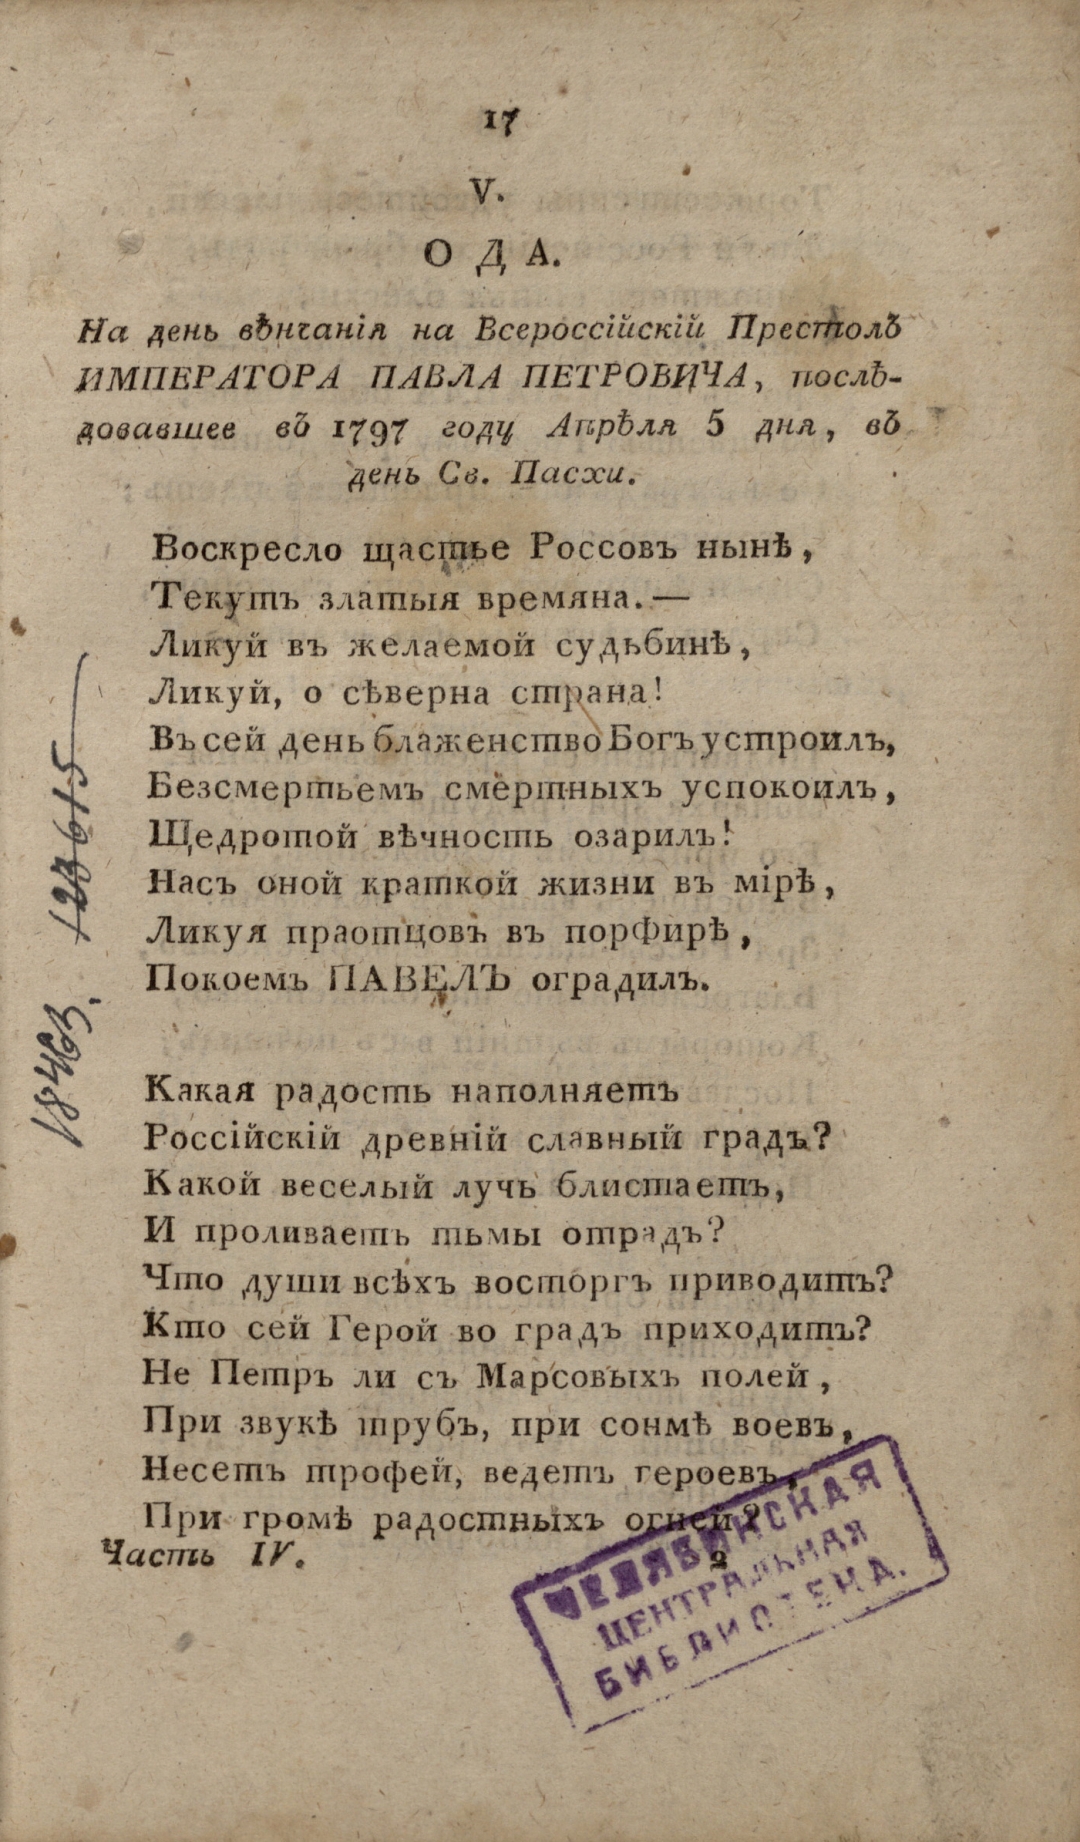 17
V.
ОДА.
На день вѣнчанія на Всероссійскій Престолъ
ИМПЕРАТОРА ПАВЛА ПЕТРОВИЧА, послѣ-
довавшее въ 1797 году Апрѣля 5 дня, въ
день Св. Пасхи.
Воскресло щастье Россовъ нынѣ,
Текутъ златыя времяна. —
Ликуй въ желаемой судьбинѣ,
Ликуй, о сѣверна страна!
Въ сей день блаженство Богъ устроилъ,
Безсмертьемъ смертныхъ успокоилъ,
Щедротой вѣчность озарилъ!
Насъ оной краткой жизни въ мірѣ,
Ликуя праотцовъ въ порфирѣ,
Покоемъ ПАВЕЛЪ оградилъ.
Какая радость наполняетъ
Россійскій древній славный градъ?
Какой веселый лучь блистаетъ,
И проливаетъ тьмы отрадъ?
Что души всѣхъ восторгъ приводитъ?
Кто сей Герой во градъ приходитъ?
Не Петръ ли съ Марсовыхъ полей,
При звукѣ трубъ, при сонмѣ воевъ,
Несетъ трофей, ведетъ героевъ,
При громѣ радостныхъ огней?
Часть IV. 2
ЧЕЛЯБИНСКАЯ
ЦЕНТРАЛЬНАЯ
БИБЛИОТЕКА.
123615
18463.